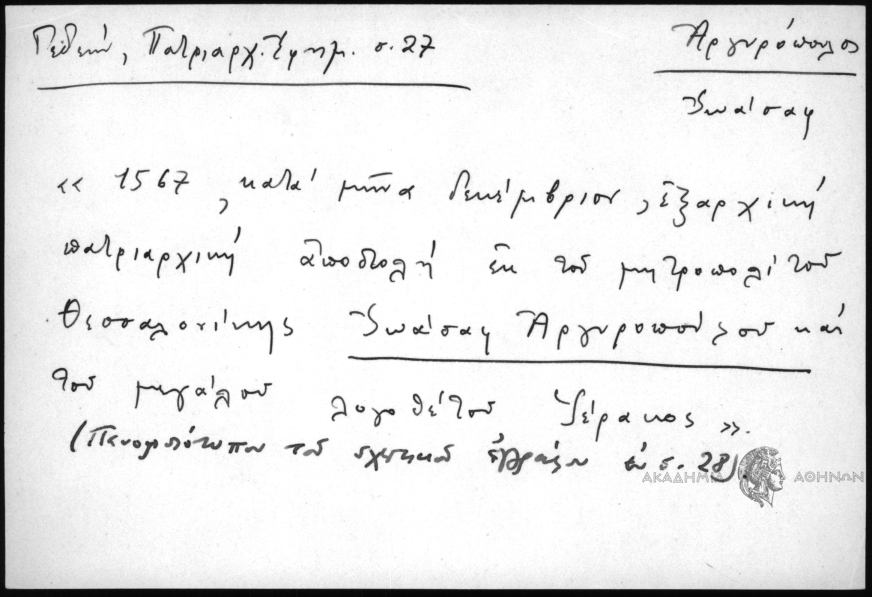 Γεδεών, Πατριαρχ. Ἐφημ. σ. 27
Ἀργυρόπουλος
Ἰωάσαφ
« 1567, κατὰ μῆνα δεκέμβριον, ἐξαρχική
πατριαρχική ἀποστολή ἐκ τοῦ μητροπολίτου
Θεσσαλονίκης Ἰωάσαφ Ἀργυροπούλου καὶ
τοῦ μεγάλου λογοθέτου Ἱέρακος ».
( τοῦ σχετικοῦ ἐγγράφου ἐν σ. 28).
ΑΚΑΔΗΜΙΑ ΑΘΗΝΩΝ